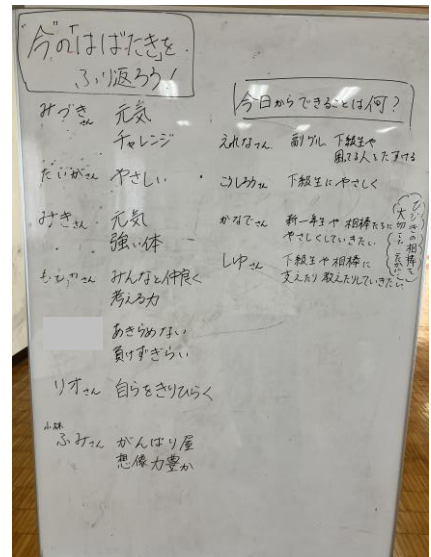 "今"の「はばたき」を
ふり返ろう！
みづきさん 元気
チャレンジ
たいがさん やさしい
みきさん 元気
強い体
さん みんなと仲良く
考える力
あきらめない
負けずぎらい
リオさん 自らをきりひらく
小林
ふみさん がんばり屋
想像力豊か
今日からできることは何？
えれなさん 副グル 下級生や
困てる人をたすける
こうしろうさん 下級生にやさしく
かなでさん 新一年生や相棒たちに
やさしくしていきたい
しゆさん 下級生や相棒に
支えたり教えたりしていきたい
ひびきの相棒を
大切にして